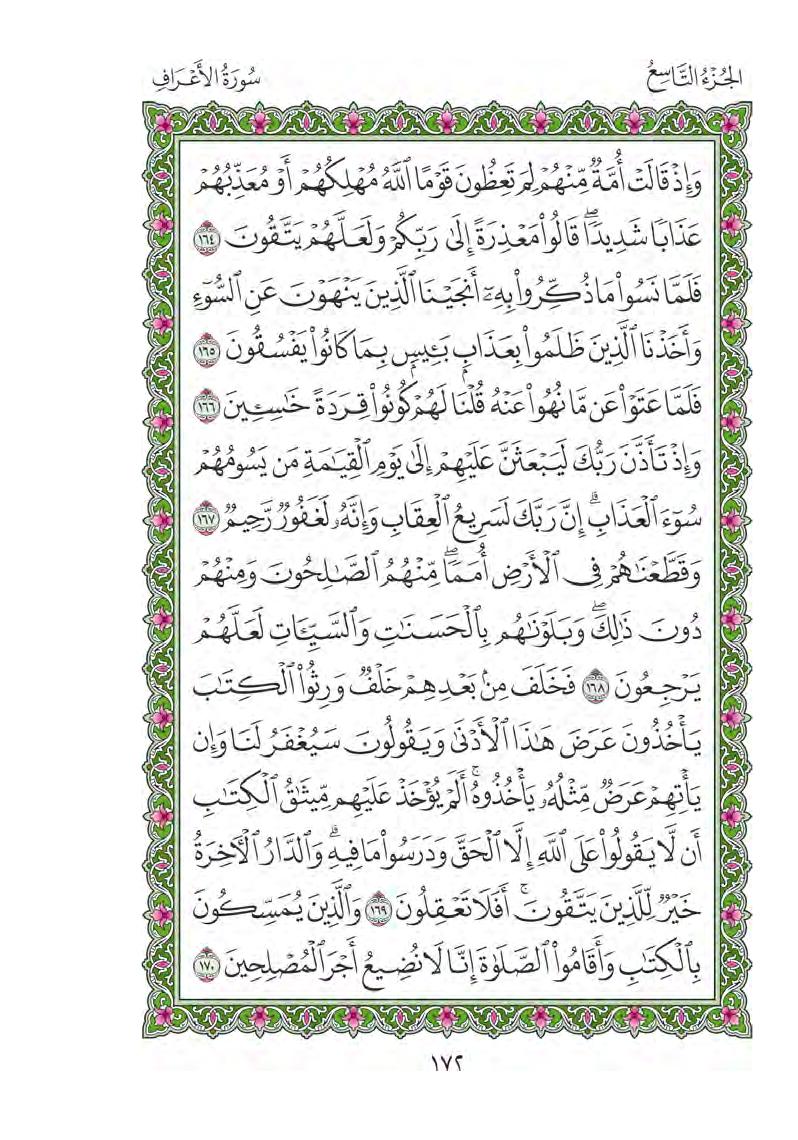 الجُزْءُ التَّاسِعُ
سُورَةُ الأَعْرَافِ
وَإِذْ قَالَتْ أُمَّةٌ مِّنْهُمْ لِمَ تَعِظُونَ قَوْمًا ٱللَّهُ مُهْلِكُهُمْ أَوْ مُعَذِّبُهُمْ
عَذَابًا شَدِيدًاۖ قَالُوا۟ مَعْذِرَةً إِلَىٰ رَبِّكُمْ وَلَعَلَّهُمْ يَتَّقُونَ ١٦٤
فَلَمَّا نَسُوا۟ مَا ذُكِّرُوا۟ بِهِۦٓ أَنجَيْنَا ٱلَّذِينَ يَنْهَوْنَ عَنِ ٱلسُّوٓءِ
وَأَخَذْنَا ٱلَّذِينَ ظَلَمُوا۟ بِعَذَابٍۭ بَـِٔيسٍۭ بِمَا كَانُوا۟ يَفْسُقُونَ ١٦٥
فَلَمَّا عَتَوْا۟ عَن مَّا نُهُوا۟ عَنْهُ قُلْنَا لَهُمْ كُونُوا۟ قِرَدَةً خَـٰسِـِٔينَ ١٦٦
وَإِذْ تَأَذَّنَ رَبُّكَ لَيَبْعَثَنَّ عَلَيْهِمْ إِلَىٰ يَوْمِ ٱلْقِيَـٰمَةِ مَن يَسُومُهُمْ
سُوٓءَ ٱلْعَذَابِۗ إِنَّ رَبَّكَ لَسَرِيعُ ٱلْعِقَابِ وَإِنَّهُۥ لَغَفُورٌ رَّحِيمٌ ١٦٧
وَقَطَّعْنَـٰهُمْ فِى ٱلْأَرْضِ أُمَمًاۖ مِّنْهُمُ ٱلصَّـٰلِحُونَ وَمِنْهُمْ
دُونَ ذَٰلِكَۖ وَبَلَوْنَـٰهُم بِٱلْحَسَنَـٰتِ وَٱلسَّيِّـَٔاتِ لَعَلَّهُمْ
يَرْجِعُونَ ١٦٨ فَخَلَفَ مِنۢ بَعْدِهِمْ خَلْفٌ وَرِثُوا۟ ٱلْكِتَـٰبَ
يَأْخُذُونَ عَرَضَ هَـٰذَا ٱلْأَدْنَىٰ وَيَقُولُونَ سَيُغْفَرُ لَنَا وَإِن
يَأْتِهِمْ عَرَضٌ مِّثْلُهُۥ يَأْخُذُوهُۚ أَلَمْ يُؤْخَذْ عَلَيْهِم مِّيثَـٰقُ ٱلْكِتَـٰبِ
أَن لَّا يَقُولُوا۟ عَلَى ٱللَّهِ إِلَّا ٱلْحَقَّ وَدَرَسُوا۟ مَا فِيهِۗ وَٱلدَّارُ ٱلْـَٔاخِرَةُ
خَيْرٌ لِّلَّذِينَ يَتَّقُونَۚ أَفَلَا تَعْقِلُونَ ١٦٩ وَٱلَّذِينَ يُمَسِّكُونَ
بِٱلْكِتَـٰبِ وَأَقَامُوا۟ ٱلصَّلَوٰةَ إِنَّا لَا نُضِيعُ أَجْرَ ٱلْمُصْلِحِينَ ١٧٠
١٧٢